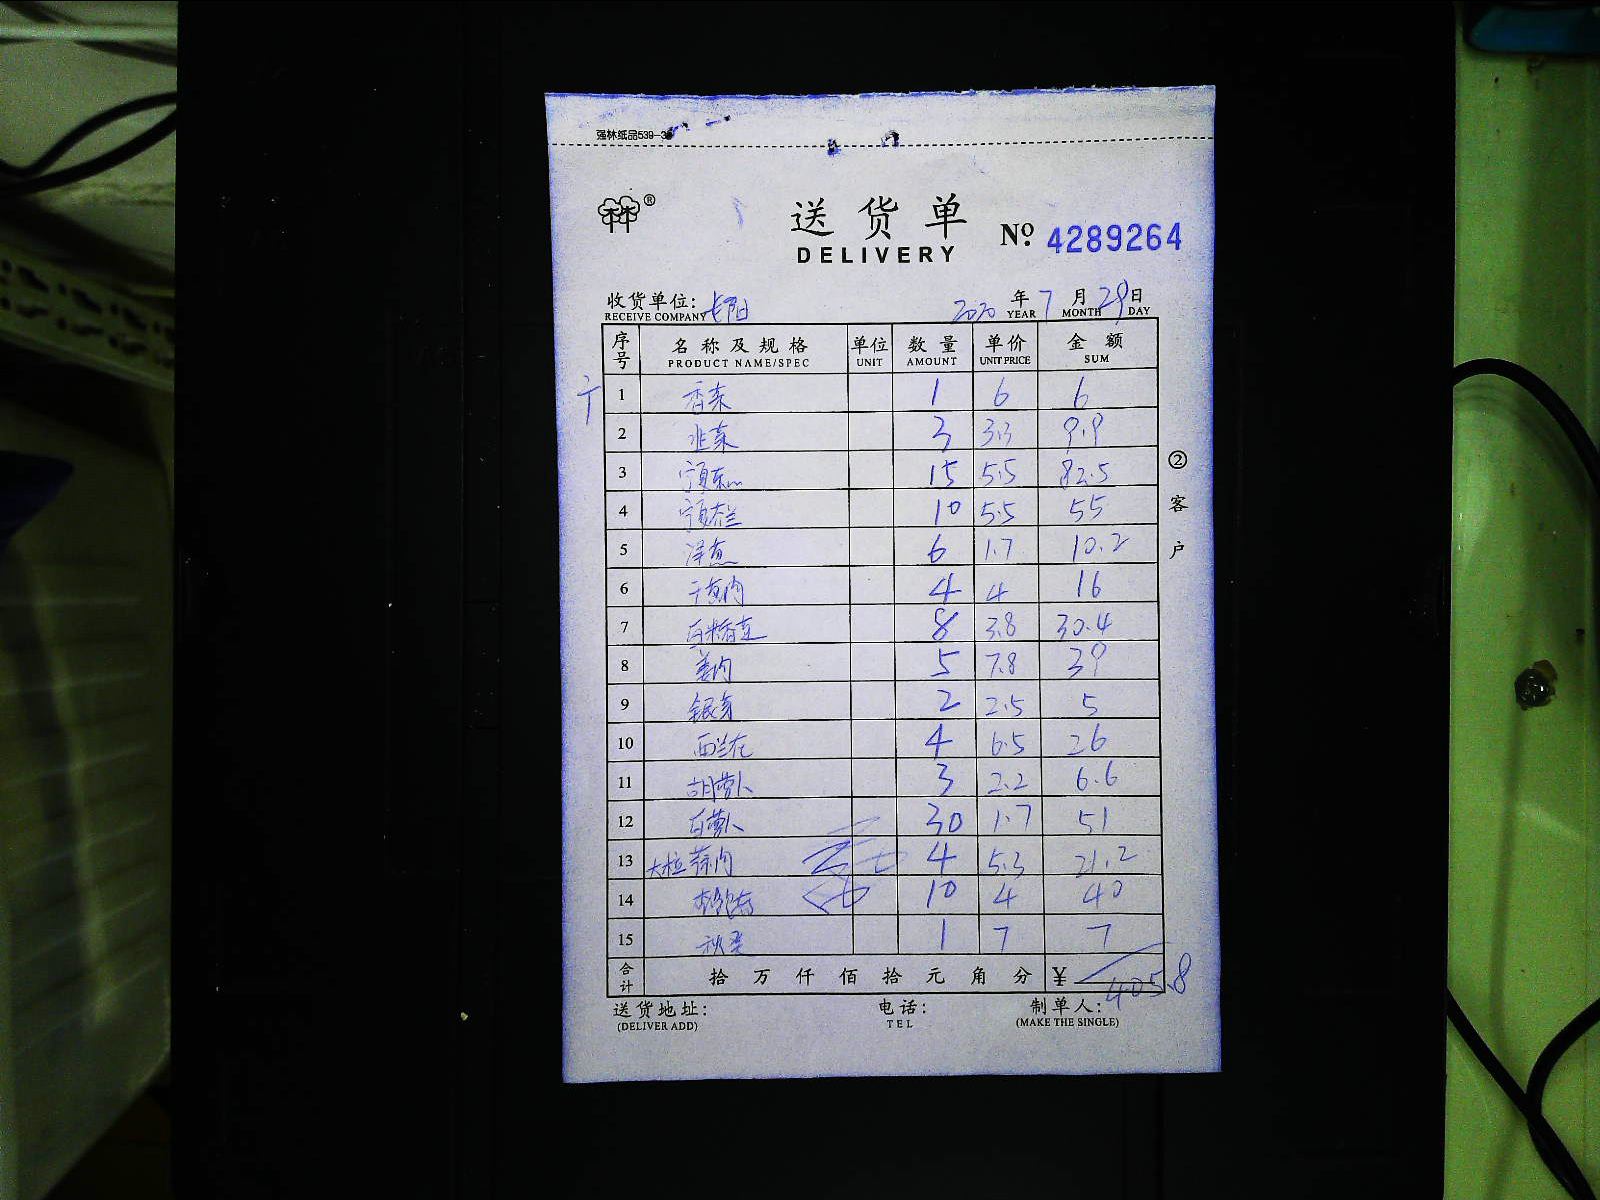 强林纸品539-3
林®
送货单
DELIVERY
№ 4289264
收货单位: 2020 年 7 月 29 日
RECEIVE COMPANY YEAR MONTH DAY
序号 名称及规格 单位 数量 单价 金额
PRODUCT NAME/SPEC UNIT AMOUNT UNIT PRICE SUM
1 香菜 1 6 6
2 韭菜 3 3.3 9.9
3 15 5.5 82.5
4 10 5.5 55
5 6 1.7 10.2
6 4 4 16
7 8 3.8 30.4
8 姜肉 5 7.8 39
9 银芽 2 2.5 5
10 西兰花 4 6.5 26
11 胡萝卜 3 2.2 6.6
12 白萝卜 30 1.7 51
13 大粒蒜肉 4 5.3 21.2
14 杏鲍菇 10 4 40
15 秋葵 1 7 7
合计 拾万仟佰拾元角分 ¥ 405.8
送货地址: 电话: 制单人:
(DELIVER ADD) TEL (MAKE THE SINGLE)
②客户